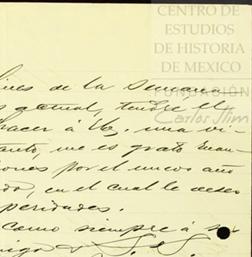 CENTRO DE
ESTUDIOS
DE HISTORIA
DE MEXICO
FUNDACIÓN
Carlos Slim
ines de la semana
s actual, tendré el
hacer á Ud. una vi-
anto, me es grato man
iones por el nuevo año
do, en el cual le deseo
peridades.
como siempre á su
migo y S. S.